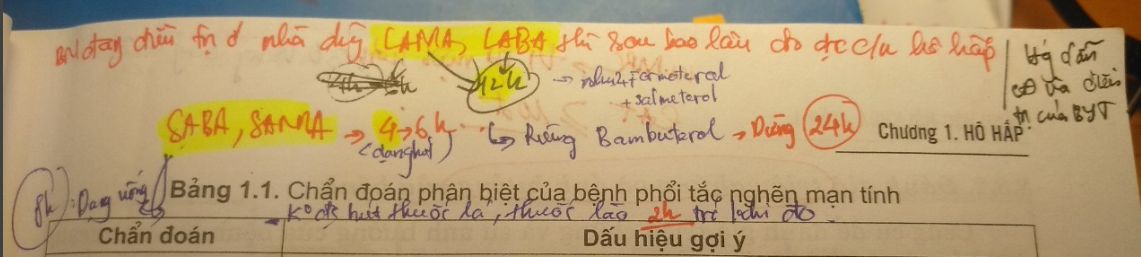 BN đang điều trị ở nhà dùng LAMA, LABA thì sau bao lâu đo đc c/n hô hấp
Hg dẫn
CĐ và điều
trị của BYT
12h → như: Formoterol
+ salmeterol
SABA, SAMA → 4→6h
(dạng hít)
↳ Riêng Bambuterol → Dừng 24h
Chương 1. HÔ HẤP
8h : Dạng uống
Bảng 1.1. Chẩn đoán phân biệt của bệnh phổi tắc nghẽn mạn tính
- K° đc hút thuốc lá, thuốc lào 2h trc khi đo.
Chẩn đoán
Dấu hiệu gợi ý